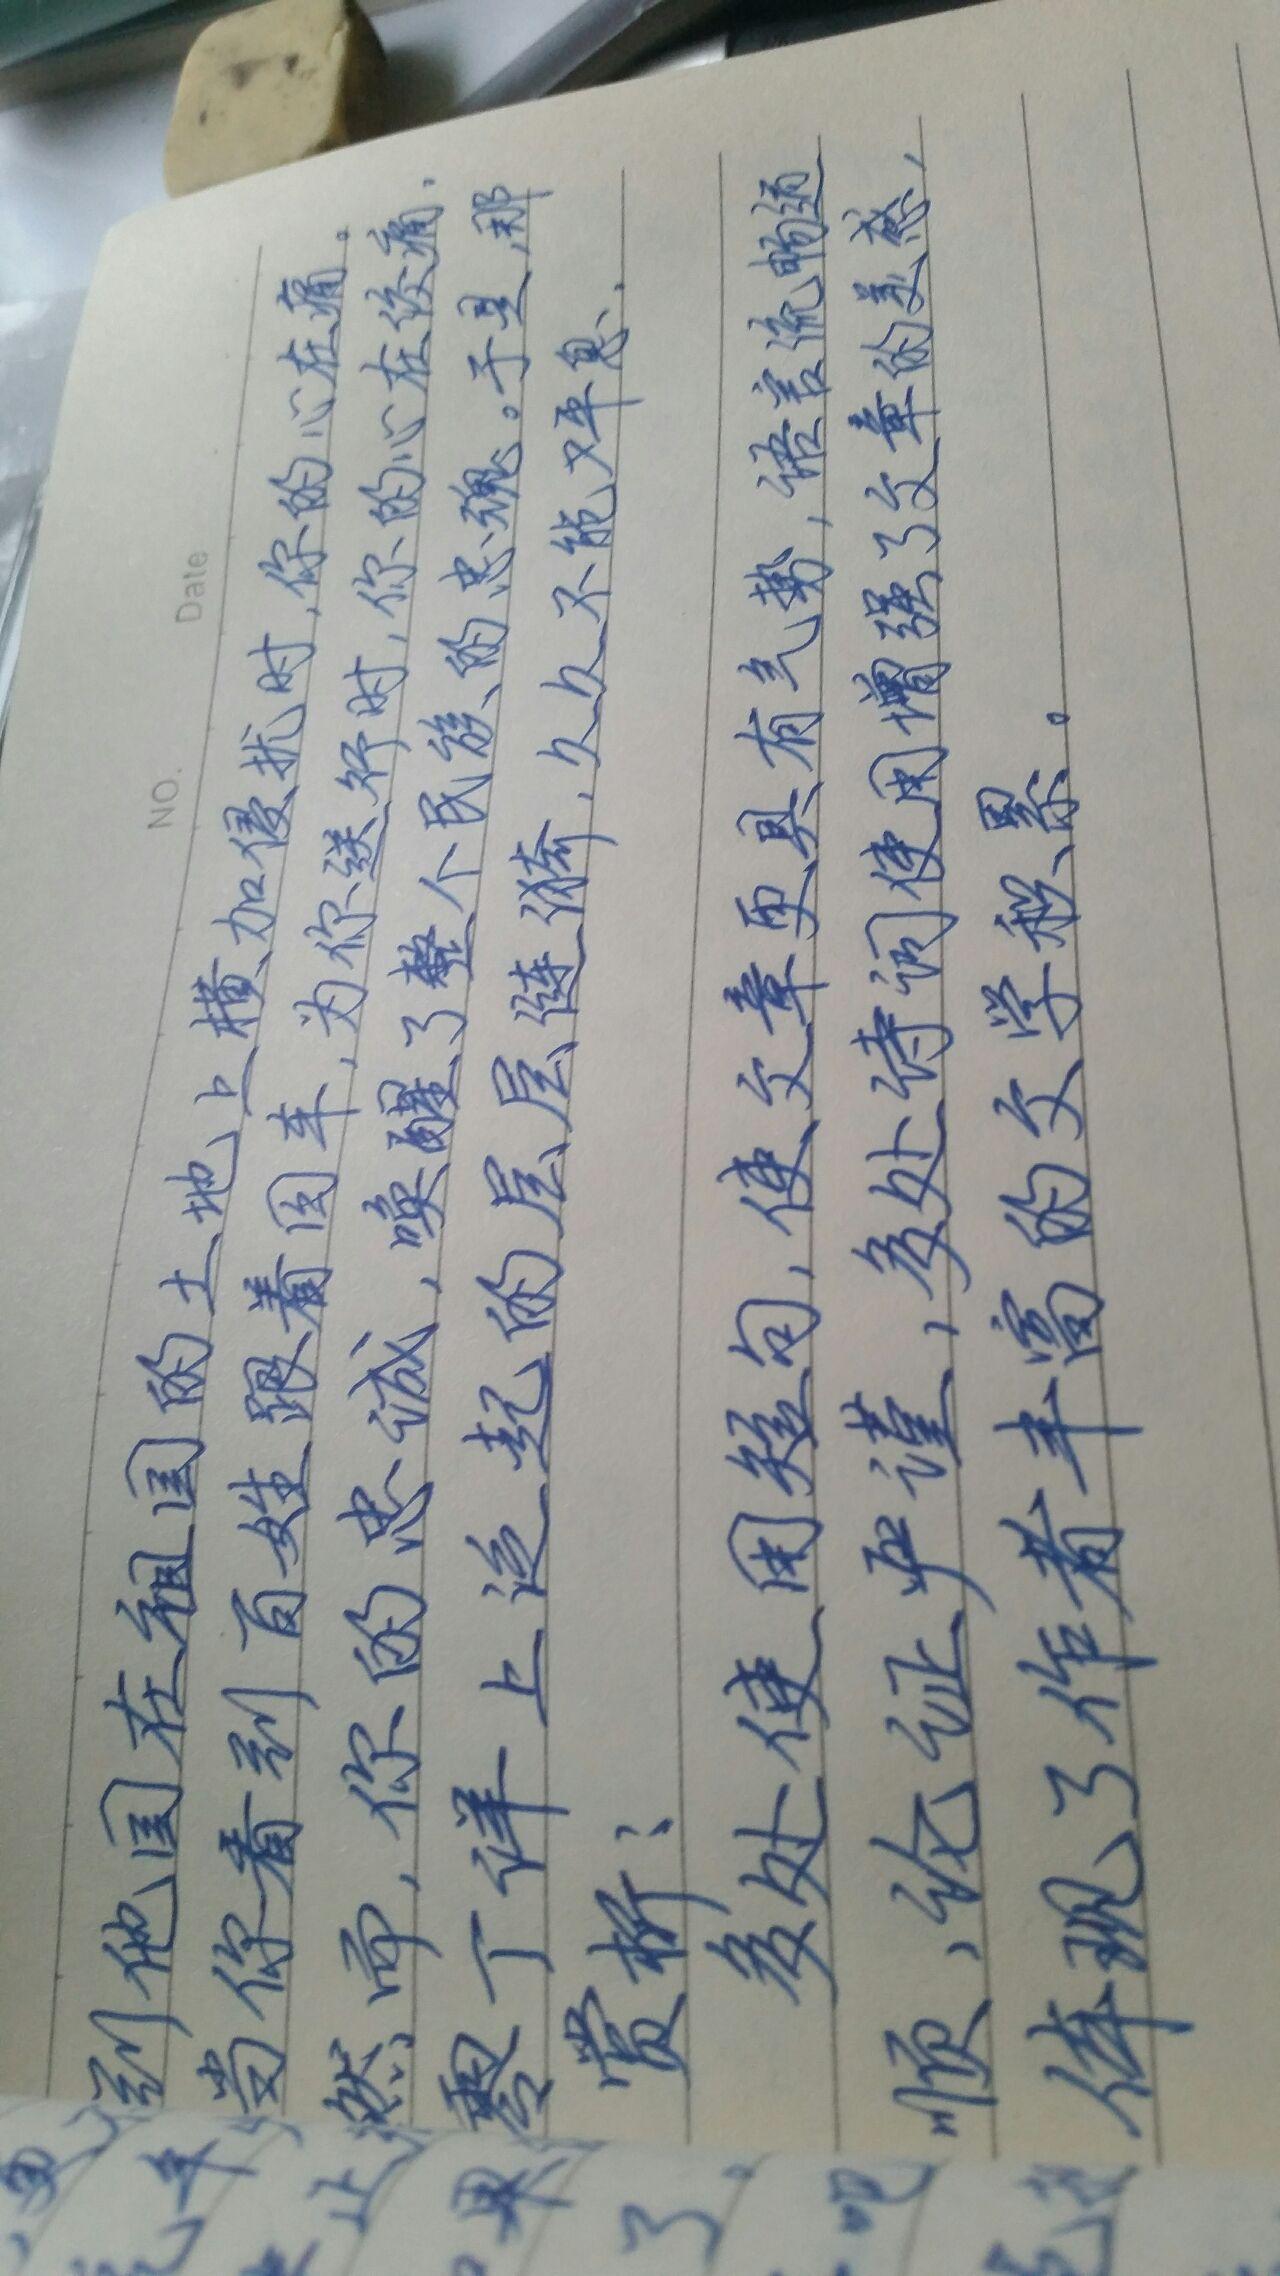 NO. Date
到他国在祖国的土地上横加侵扰时，你的心在痛。
当你看到百姓跟着囚车，为你送行时，你的心在绞痛.
然而，你的忠诚，唤醒了整个民族的忠魂。于是，那
零丁洋上泛起的层层涟漪，久久不能平息.
赏析：
多处使用短句，使文章更具有气势，语言流畅通
顺，论证严谨，多处诗词使用增强了文章的美感，
体现了作者丰富的文学积累。